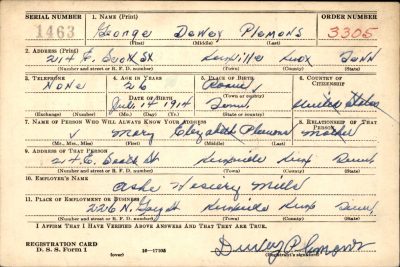 SERIAL NUMBER 1. NAME (Print) ORDER NUMBER
1463 George Dewey Plemons 3305
(First) (Middle) (Last)
2. ADDRESS (Print)
214 E. Scott St Knoxville Knox Tenn
(Number and street or R. F. D. number) (Town) (County) (State)
3. TELEPHONE 4. AGE IN YEARS 5. PLACE OF BIRTH 6. COUNTRY OF CITIZENSHIP
None 26 Roane
DATE OF BIRTH (Town or county)
14 1914 Tenn. United States
(Exchange) (Number) (Mo.) (Day) (Yr.) (State or country)
7. NAME OF PERSON WHO WILL ALWAYS KNOW YOUR ADDRESS 8. RELATIONSHIP OF THAT PERSON
Mary Elizabeth Plemons Mother
(Mr., Mrs., Miss) (First) (Middle) (Last)
9. ADDRESS OF THAT PERSON
214 E. Scott St Knoxville Knox Tenn
(Number and street or R. F. D. number) (Town) (County) (State)
10. EMPLOYER'S NAME
Ashe Hosiery Mills
11. PLACE OF EMPLOYMENT OR BUSINESS
226 N. Gay St Knoxville Knox Tenn
(Number and street or R. F. D. number) (Town) (County) (State)
I AFFIRM THAT I HAVE VERIFIED ABOVE ANSWERS AND THAT THEY ARE TRUE.
REGISTRATION CARD
D. S. S. Form 1 16—17105 Plemons
(over) (Registrant's signature)